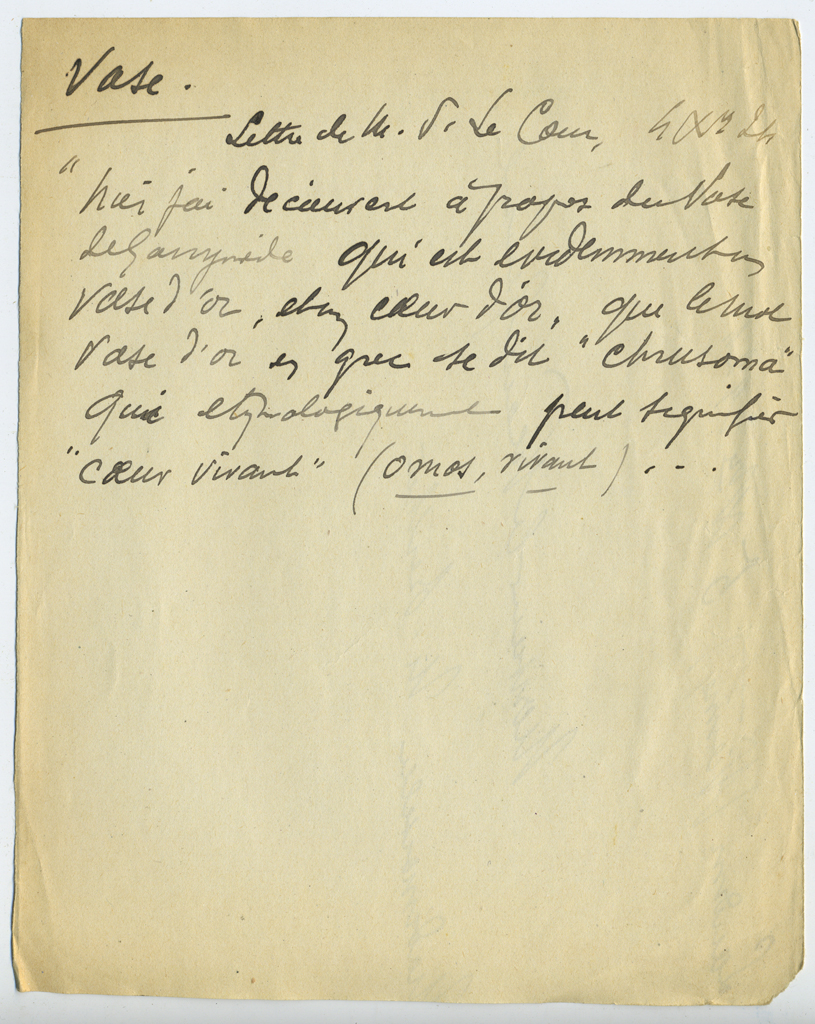 Vase.
Lettre de M. P. Le Cour, 4 Xbre 24
"hier j'ai découvert à propos du Vase
de Ganymède qui est evidemment un
vase d'or, et un cœur d'or, que le mot
vase d'or en grec se dit "chrusoma"
qui etymologiquement peut signifier
"cœur vivant" (omos, vivant) ...